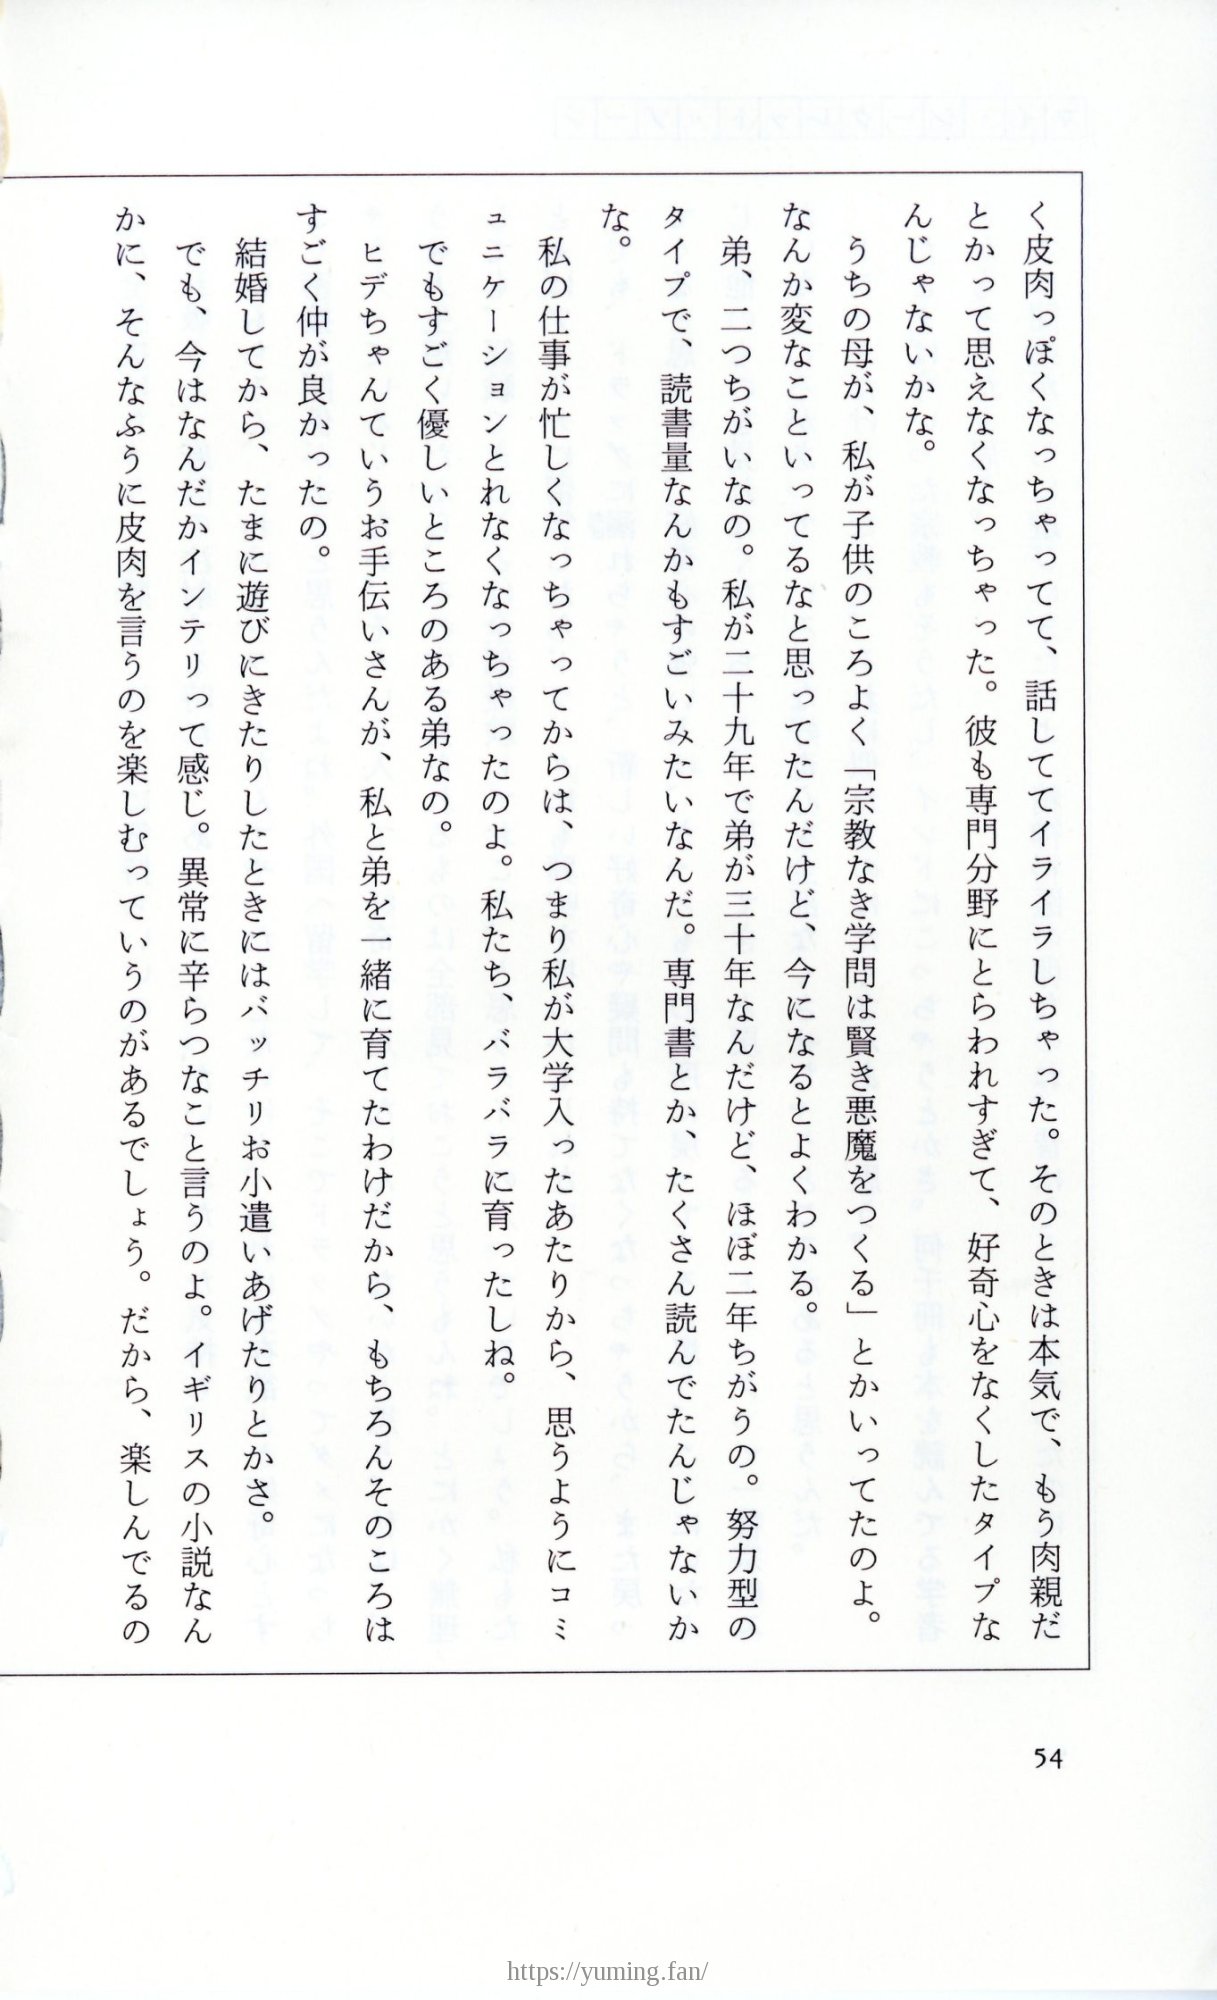 く皮肉っぽくなっちゃってて、話しててイライラしちゃった。そのときは本気で、もう肉親だ
とかって思えなくなっちゃった。彼も専門分野にとらわれすぎて、好奇心をなくしたタイプな
んじゃないかな。
うちの母が、私が子供のころよく「宗教なき学問は賢き悪魔をつくる」とかいってたのよ。
なんか変なこといってるなと思ってたんだけど、今になるとよくわかる。
弟、二つちがいなの。私が二十九年で弟が三十年なんだけど、ほぼ二年ちがうの。努力型の
タイプで、読書量なんかもすごいみたいなんだ。専門書とか、たくさん読んでたんじゃないか
な。
私の仕事が忙しくなっちゃってからは、つまり私が大学入ったあたりから、思うようにコミ
ュニケーションとれなくなっちゃったのよ。私たち、バラバラに育ったしね。
でもすごく優しいところのある弟なの。
ヒデちゃんていうお手伝いさんが、私と弟を一緒に育てたわけだから、もちろんそのころは
すごく仲が良かったの。
結婚してから、たまに遊びにきたりしたときにはバッチリお小遣いあげたりとかさ。
でも、今はなんだかインテリって感じ。異常に辛らつなこと言うのよ。イギリスの小説なん
かに、そんなふうに皮肉を言うのを楽しむっていうのがあるでしょう。だから、楽しんでるの
54
https://yuming.fan/